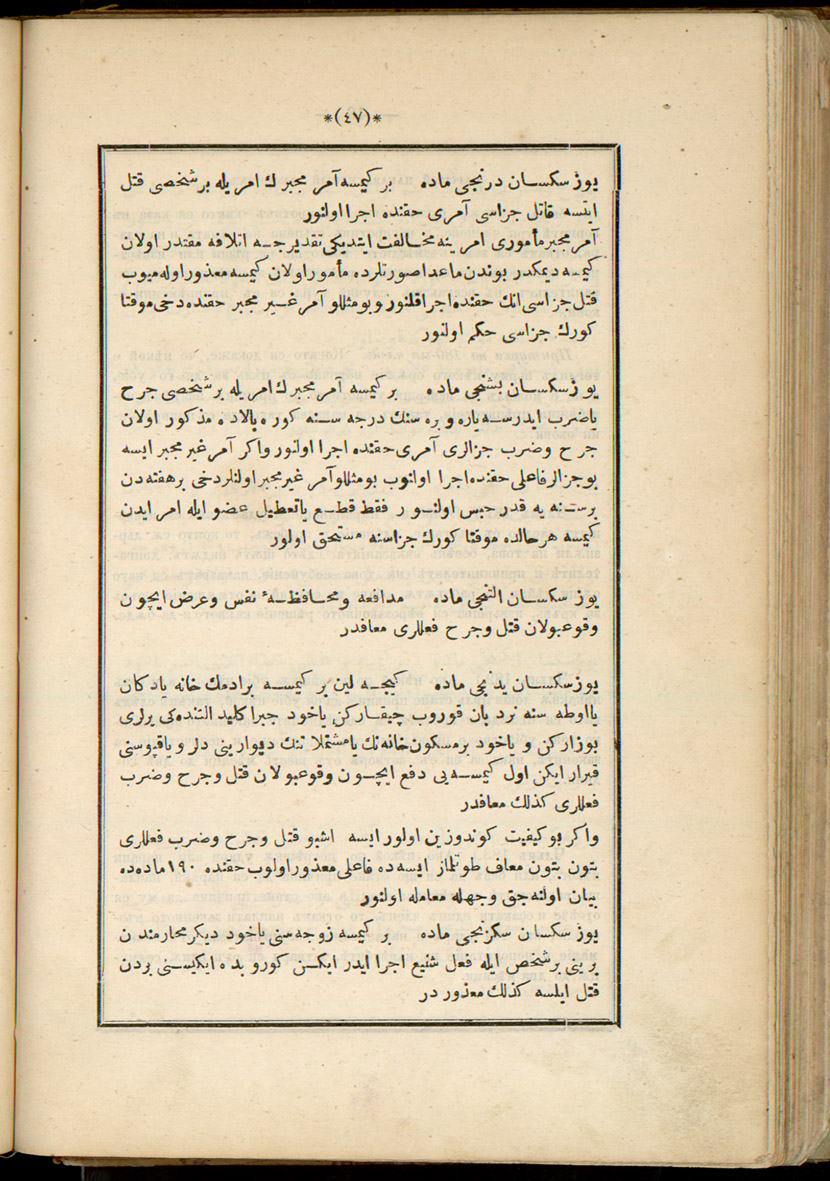 *(٤٧)*
یوز سكسـان درنجی ماده بر كیمسه آمر مجبرك امریله بر شخصی قتل
ایتسه قاتل جزاسی آمری حقنده اجرا اولنور
آمر مجبر مأموری امرینه مخـالفت ایتدیكی تقدیرجـه اتلافه مقتدر اولان
كیمسه دیمكدر بوندن ماعدا صورتلرده مأمور اولان كیمسه معذور اوله میوب
قتل جزاسی انك حقنده اجرا قلنور و بومثللو آمر غـیر مجبر حقنده دخی موقتا
كورك جزاسی حكم اولنور
یوز سكسـان بشنجی ماده بر كیمسه آمر مجبرك امریله بر شخصی جرح
یاضرب ایدرسـه یاره و بره سنك درجه سـنه كوره بالاده مذكور اولان
جرح وضرب جزالری آمری حقنده اجرا اولنور واكر آمر غیر مجبر ایسه
بو جزالر فاعلی حقنده اجرا اولنوب بومثللو آمر غیر مجبر اولنلر دخی بر هفته دن
بر سـنه یه قدر حبس اولنـور فقط قطـع یا تعطیل عضو ایله امر ایدن
كیمسه هر حالده موقتا كورك جزاسنه مستحق اولور
یوز سكسـان التنجی ماده مدافعه و محـافظـهٔ نفس و عرض ایچون
وقوعبولان قتل وجرح فعللری معافدر
یوز سكسـان یدنجی ماده كیجـه لین بر كیمسـه بر ادمك خانه یا دكان
یا اوطه سنه نردبان قوروب چیقاركن یاخود جبرا كلید التنده كی یرلری
بوزاركن و یاخود بر مسكون خانه نك یا مشتملاتنك دیوارینی دلر و یا قپوسنی
قیرار ایكن اول كیمسـه یی دفع ایچـون وقوعبولان قتل وجرح وضرب
فعللری كذلك معافدر
واكر بو كیفیت كوندوزین اولور ایسه اشبو قتل وجرح وضرب فعللری
بتون بتون معاف طوتلماز ایسه ده فاعلی معذور اولوب حقنده ١٩٠ ماده ده
بیان اولنه جق وجهله معامله اولنور
یوز سكسان سكزنجی ماده بر كیمسه زوجه سنی یاخود دیكر محارمندن
برینی بر شخص ایله فعل شنیع اجرا ایدر ایكـن كوروبده ایكیسنی بردن
قتل ایلسه كذلك معذور در